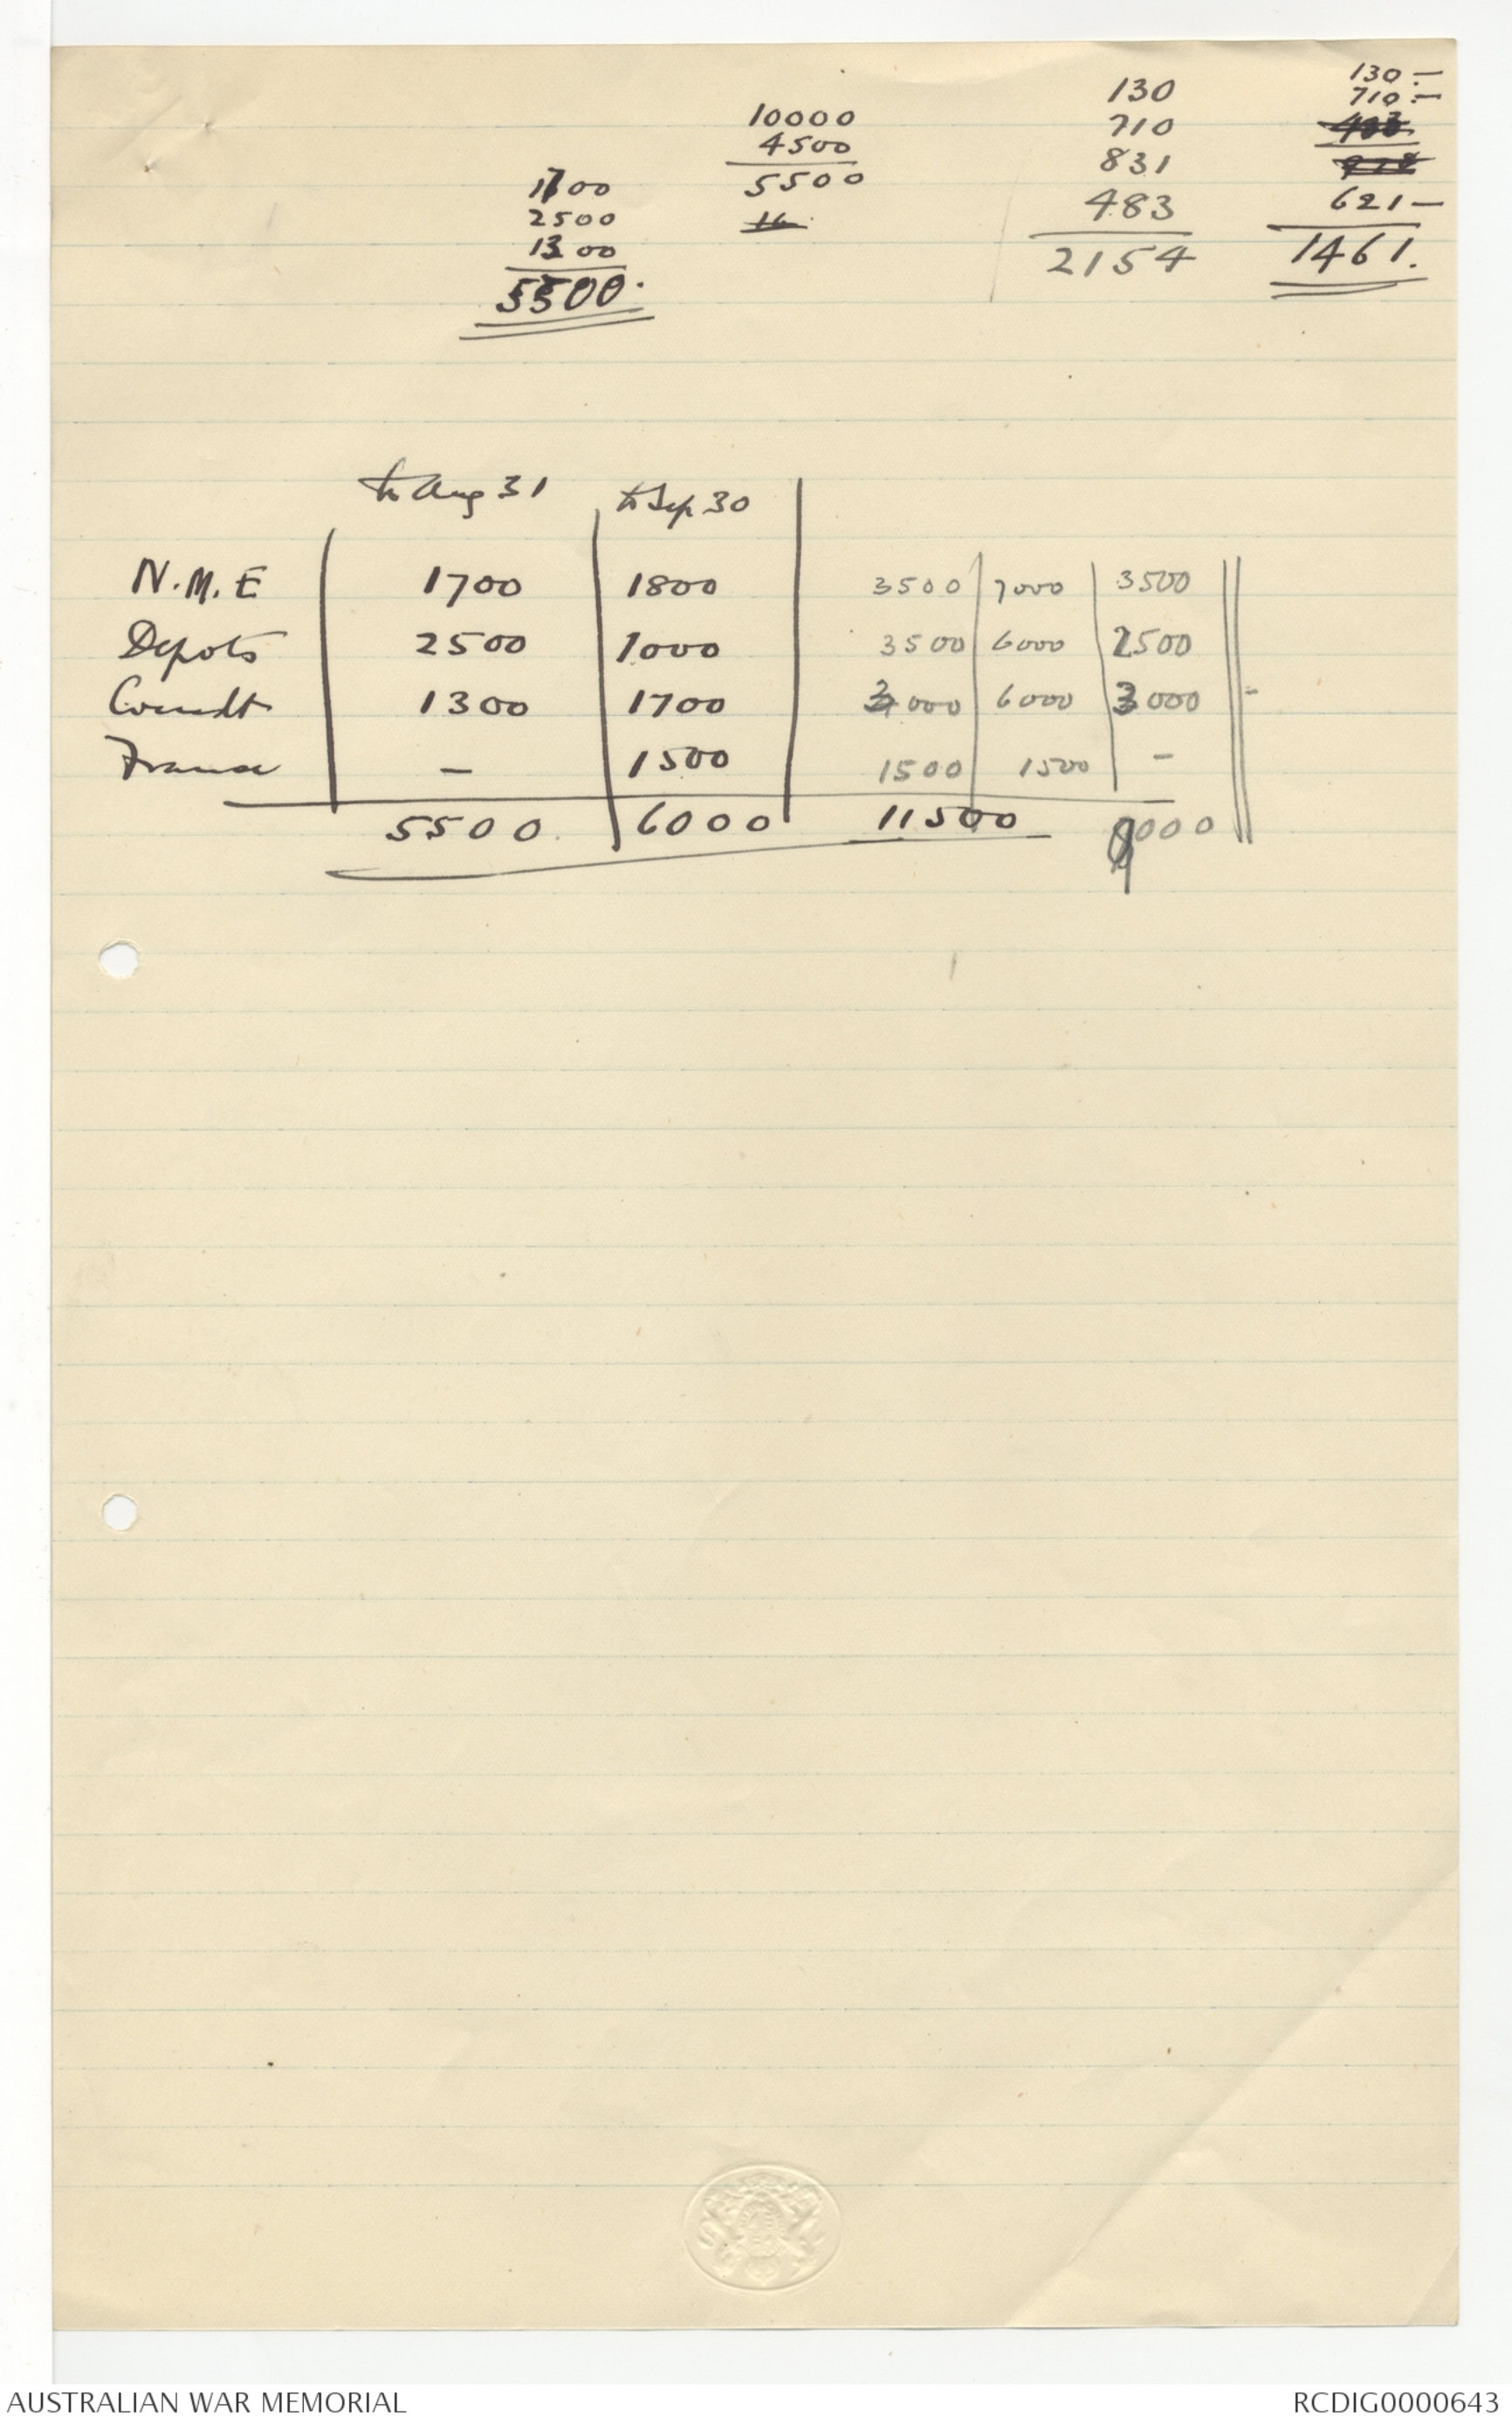 1700
2500
1300
5500.
10000
4500
5500
16
130
710
831
483
2154
130 -
710 -
621 -
1461.
to Aug 31 to Sep 30
N.M.E 1700 1800 3500 7000 3500
Depots 2500 1000 3500 6000 2500
Comdt 1300 1700 3000 6000 3000
France - 1500 1500 1500 -
5500 6000 11500 9000
AUSTRALIAN WAR MEMORIAL RCDIG0000643